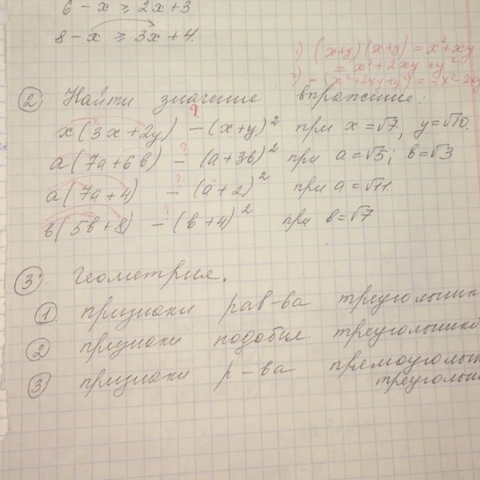 6 - x ≥ 2x + 3
8 - x ≥ 3x + 4
1) (x+y)(x+y) = x²+xy
= x²+2xy+y²
2) -(x²+2xy+y²) = -x²-2xy
② Найти значение выражение:
x(3x+2y) - (x+y)² при x=√7, y=√10.
a(7a+6b) - (a+3b)² при a=√5; b=√3
a(7a+4) - (a+2)² при a=√11
b(5b+8) - (b+4)² при b=√7
③ Геометрия.
① признаки рав-ва треугольник
② признаки подобия треугольнико
③ признаки р-ва прямоуголь
треуголь